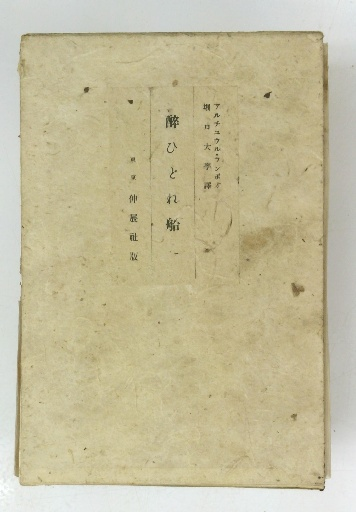 アルチユウル・ランボオ
堀口大學譯
醉ひどれ船
東京 伸展社版